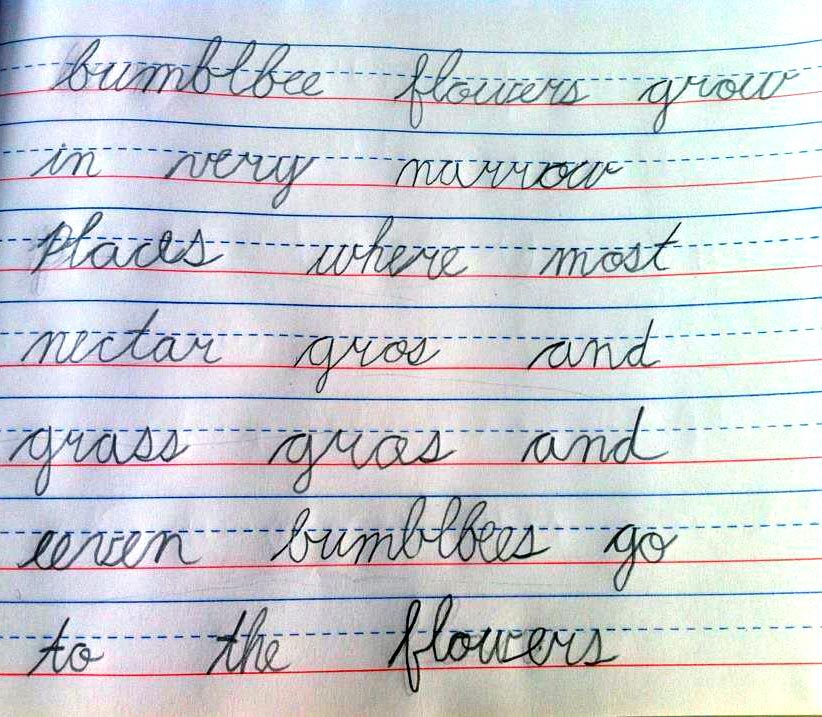 bumblbee flowers grow
in very narrow
Places where most
nectar gros and
grass gros and
eeven bumblbees go
to the flowers